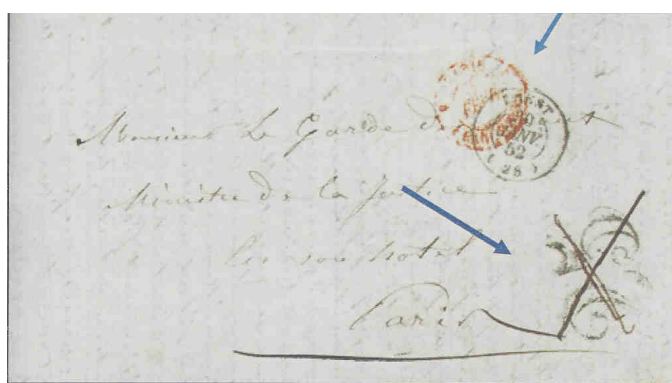 BREST
JANV.
52
(28)
Monsieur Le Garde des
Ministre de la Justice
En son hotel
Paris